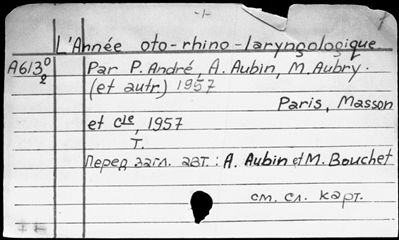 -1-
1
L'Année oto-rhino-laryngologique
A613⁰/₂
Par P. André, A. Aubin, M. Aubry.
(et autr.) 1957
Paris, Masson
et Cie, 1957
Т.
Перед загл. авт.: A. Aubin et M. Bouchet
см. сл. карт.